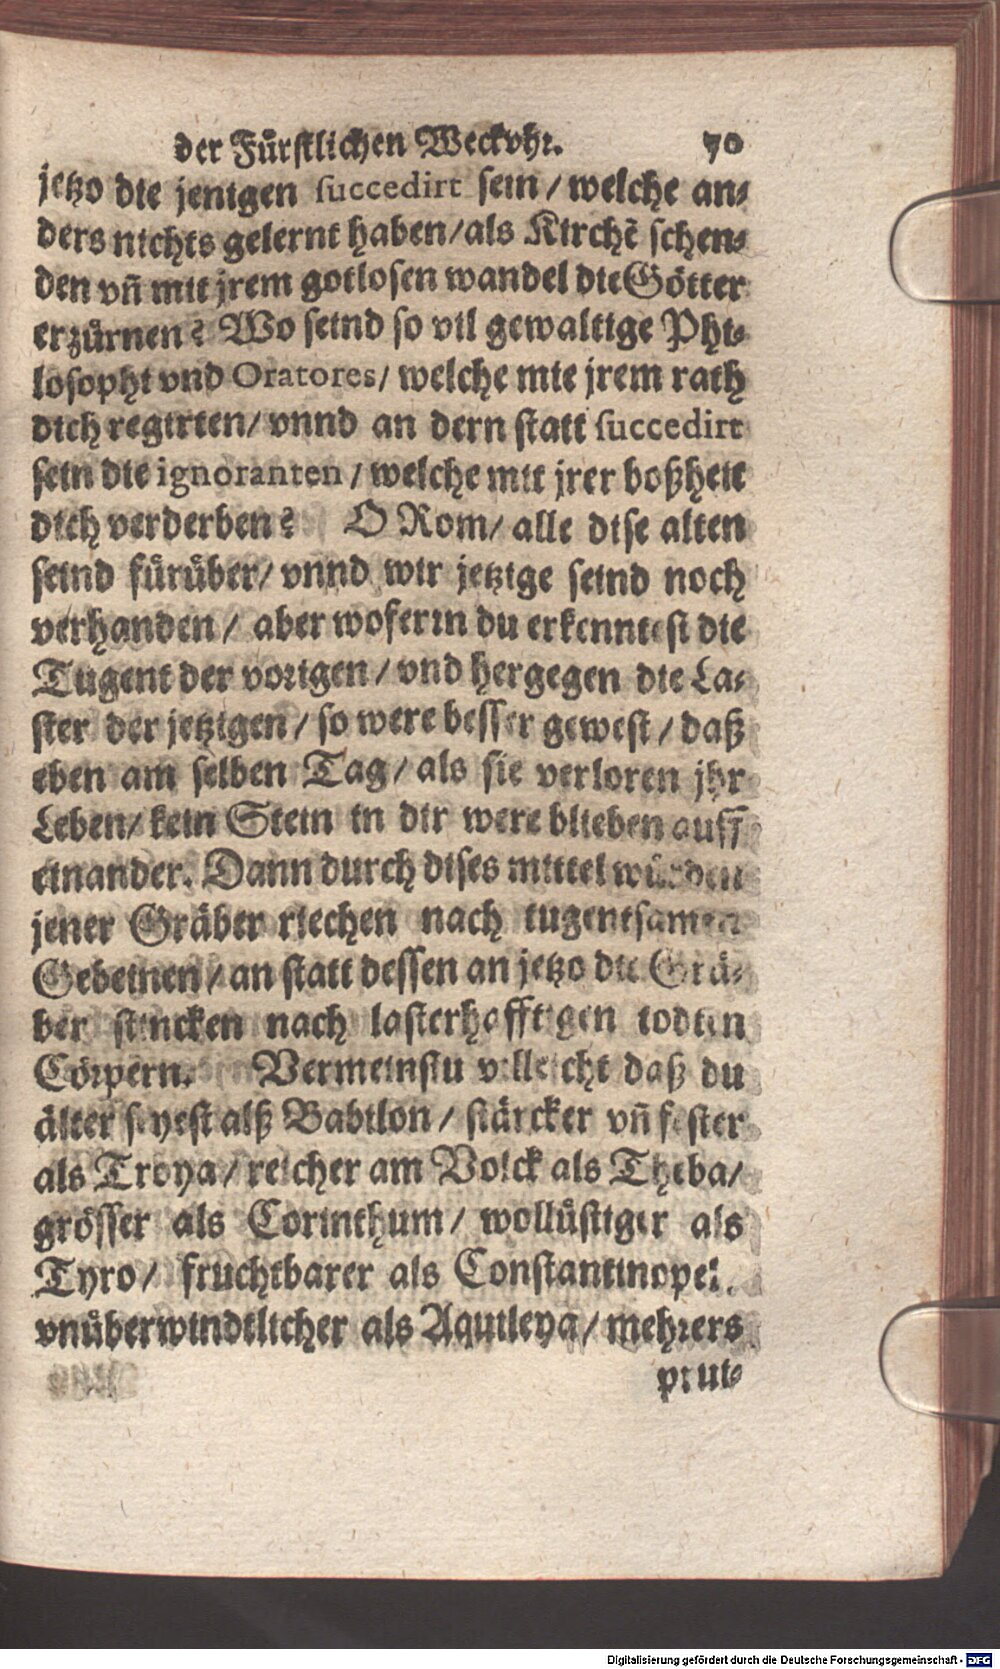 der Fürstlichen Weckvhr. 70
jetzo die jenigen succedirt sein / welche an⸗
ders nichts gelernt haben / als Kirchẽ schen⸗
den vñ mit jrem gotlosen wandel die Götter
erzürnen? Wo seind so vil gewaltige Phi⸗
losophi vnd Oratores / welche mit jrem rath
dich regirten / vnnd an dern statt succedirt
sein die ignoranten / welche mit jrer boßheit
dich verderben? O Rom / alle dise alten
seind fürüber / vnnd wir jetzige seind noch
verhanden / aber woferrn du erkenntest die
Tugent der vorigen / vnd hergegen die La⸗
ster der jetzigen / so were besser gewest / daß
eben am selben Tag / als sie verloren jhr
Leben / kein Stein in dir were blieben auff
einander. Dann durch dises mittel würden
jener Gräber riechen nach tugentsamen
Gebeinen / an statt dessen an jetzo die Grä⸗
ber stincken nach lasterhafftigen todten
Cörpern. Vermeinstu villeicht daß du
älter seyest alß Babilon / stärcker vñ fester
als Troya / reicher am Volck als Theba /
grösser als Corinthum / wollüstiger als
Tyro / fruchtbarer als Constantinopel.
vnüberwindtlicher als Aquileya / mehrers
prut⸗
Digitalisierung gefördert durch die Deutsche Forschungsgemeinschaft - DFG